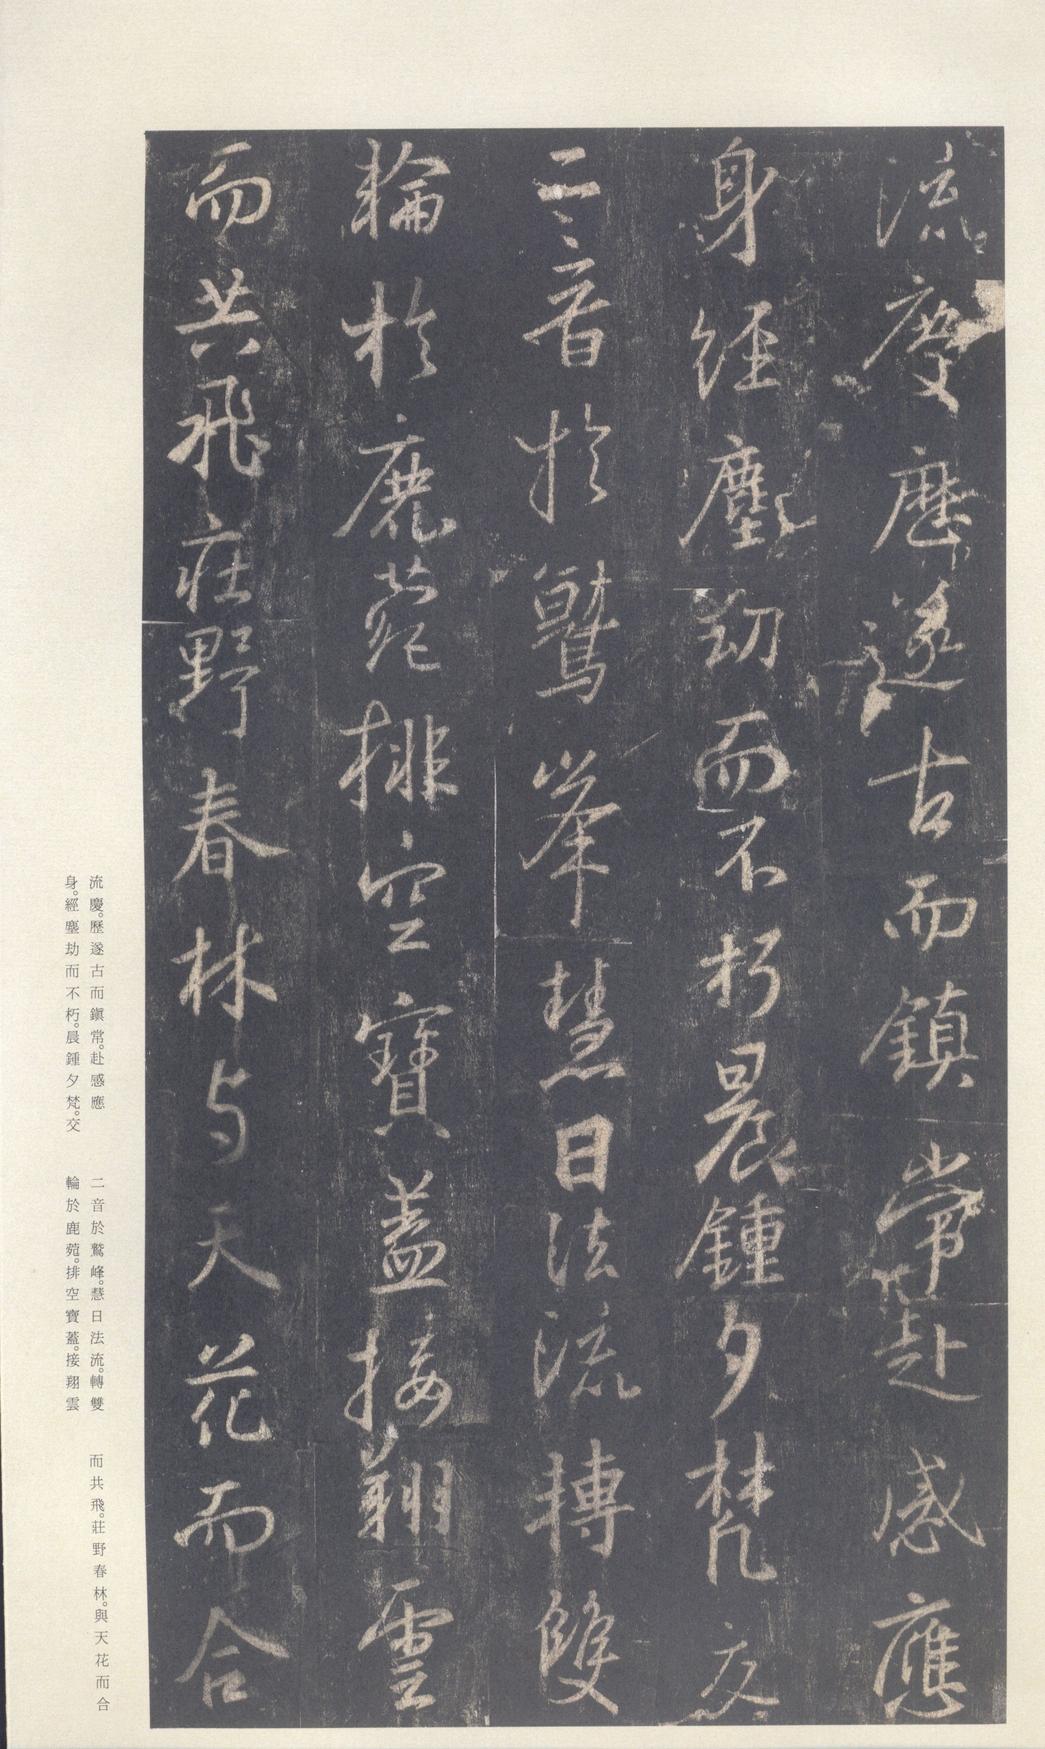 流慶歷遂古而鎮常赴感應
身經塵劫而不朽晨鍾夕梵交
二音於鷲峯慧日法流轉雙
輪於鹿菀排空寶蓋接翔雲
而共飛莊野春林与天花而合
流慶。歷遂古而鎭常。赴感應
身。經塵劫而不朽。晨鍾夕梵。交
二音於鷲峰。慧日法流。轉雙
輪於鹿菀。排空寶蓋。接翔雲
而共飛。莊野春林。與天花而合